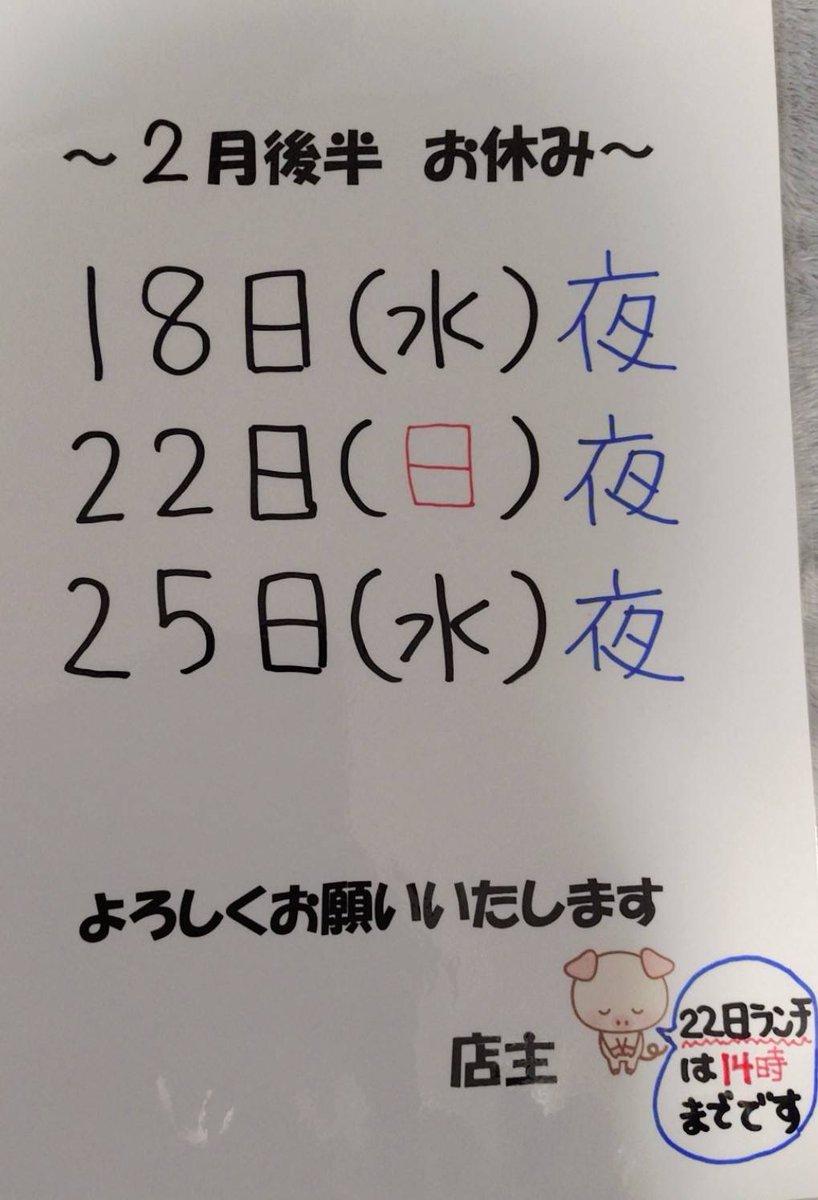 ～2月後半 お休み～
18日(水)夜
22日(日)夜
25日(水)夜
よろしくお願いいたします
店主
22日ランチ
は14時
までです